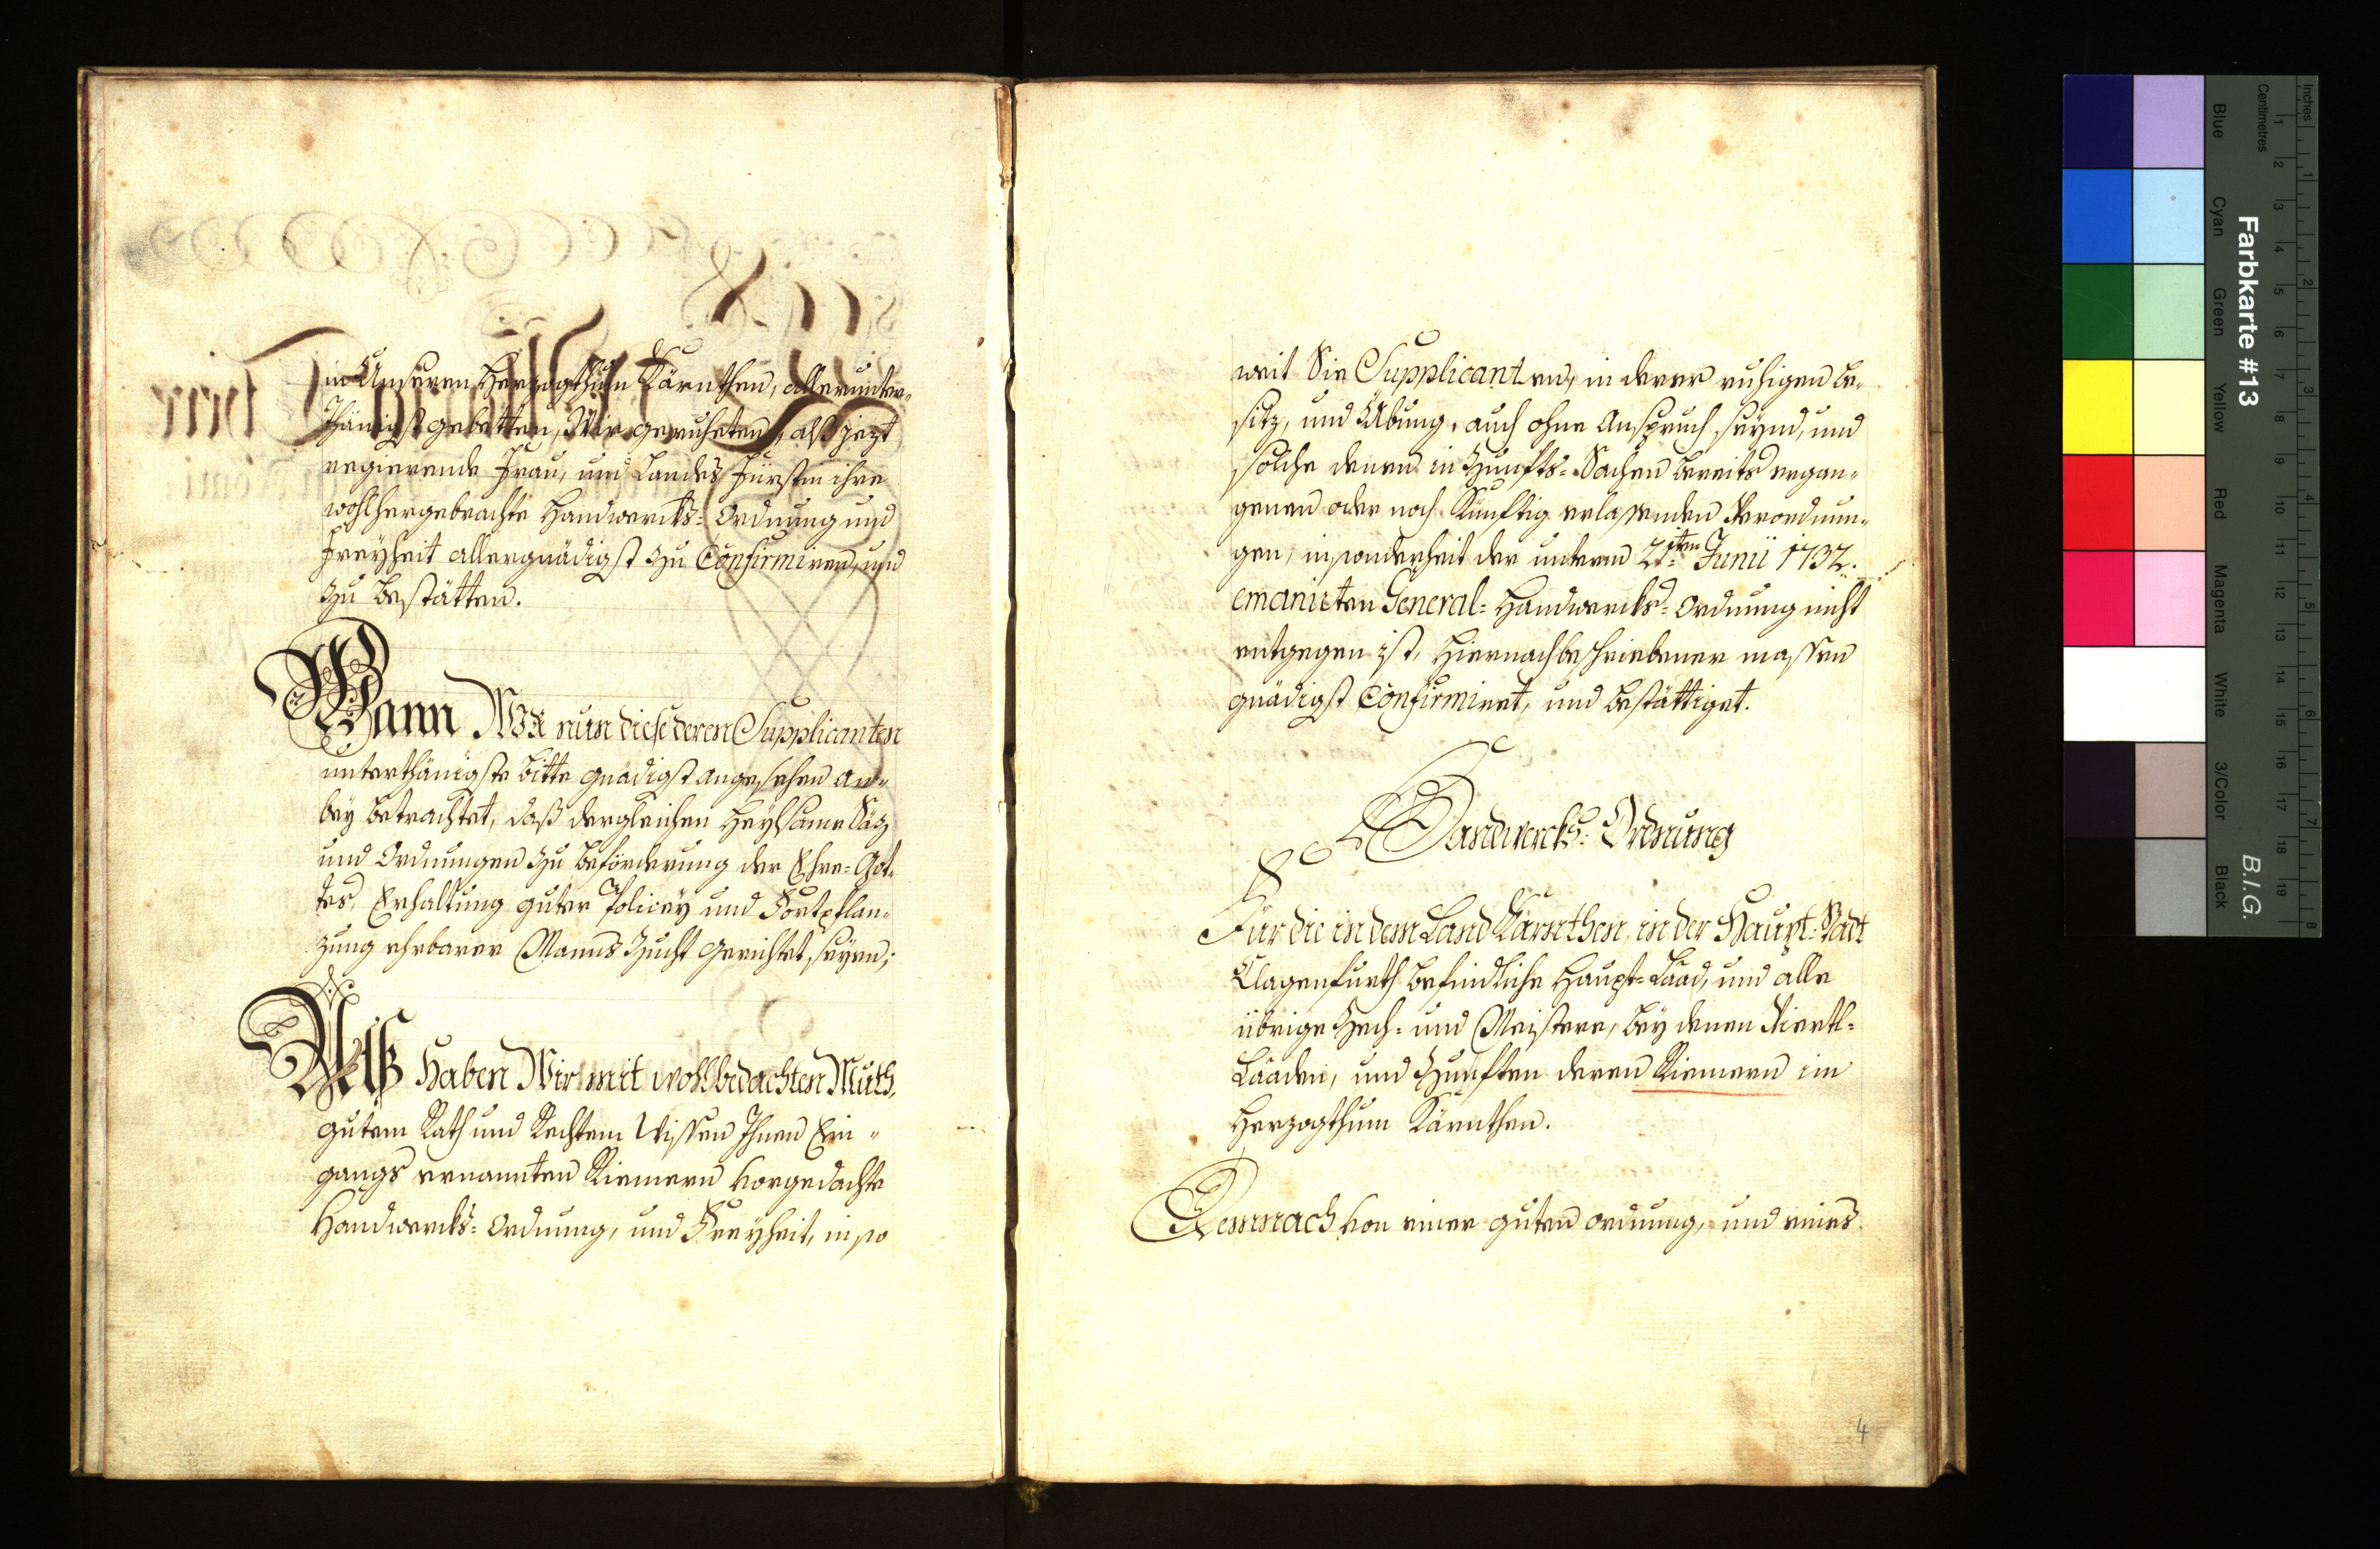 in Unseren Herzogthum Kärnthen, allerunter-
thänigst gebetten, Wir geruheten, alß jezt
regierende Frau, und Landes Fürstin ihre
wohlhergebrachte Handwercks-Ordnung und
Freyheit allergnädigst zu Confirmiren, und
zu bestätten.
Wann Wir nun diese deren Supplicanten
unterthänigste bitte gnädigst angesehen an-
bey betrachtet, daß dergleichen heylsame Säz
und Ordnungen zu beförderung der Ehre-Got-
tes, Erhaltung guter Policey und Fortpflan-
zung ehrbarer Manns Zucht gerichtet seyen;
Alß Haben Wir mit wohlbedachten Muth,
gutem Rath und Rechtem Wissen Ihnen Ein-
gangs ernannten Riemern vorgedachte
Handwercks-Ordnung, und Freyheit, in so
weit Sie Supplicanten, in derer ruhigen be-
sitz, und Übung, auch ohne Anspruch seynd, und
solche denen in Zunfts-Sachen bereits ergan-
genen oder noch künftig erlassenden Verordnun-
gen, insonderheit der unterm 21ten Junii 1732.
emanirten General-Handwercks-Ordnung nicht
entgegen ist, hiernachbeschriebener massen
gnädigst Confirmiret, und bestättiget.
Handwercks-Ordnung
Für die in dem Land Kärnthen, in der Haupt-Stadt
Clagenfurth befindliche Haupt-Laad, und alle
übrige Zech- und Meistere, bey denen Viertl-
Laaden, und Zunften deren Riemern im
Herzogthum Kärnthen.
Demnach von einer guten ordnung, und eines
4
Farbkarte #13
B.I.G.
Inches
Centimetres
Blue
Cyan
Green
Yellow
Red
Magenta
White
3/Color
Black
1 2 3 4 5 6 7 8 9 10 11 12 13 14 15 16 17 18 19
1 2 3 4 5 6 7 8